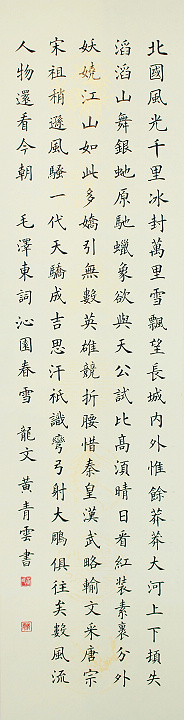 北國風光千里冰封萬里雪飄望長城内外惟餘莽莽大河上下頓失
滔滔山舞銀虵原馳蠟象欲與天公試比高湏晴日看紅裝素裹分外
妖嬈江山如此多嬌引無數英雄競折腰惜秦皇漢武略輸文采唐宗
宋祖稍遜風騷一代天驕成吉思汗祇識彎弓射大鵰俱往矣數風流
人物還看今朝 毛澤東詞沁園春雪 龍文黃青雲書